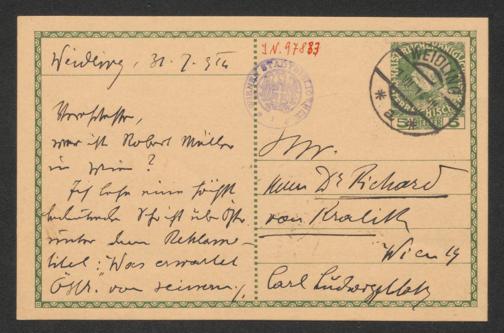 Weidling, 31. 7. 914
Verehrter,
wer ist Robert Müller
in Wien?
Ich lese eine höchst
bedeutende Schrift über Öster
unter dem Reklame-
titel: "Was erwartet
Östr. von seinem
I.N. 97883
WIENER STADTBIBLIOTHEK
WEIDLING
5 HELLER 5
Herrn Dr Richard
von Kralik
Wien 19
Carl Ludwigplatz